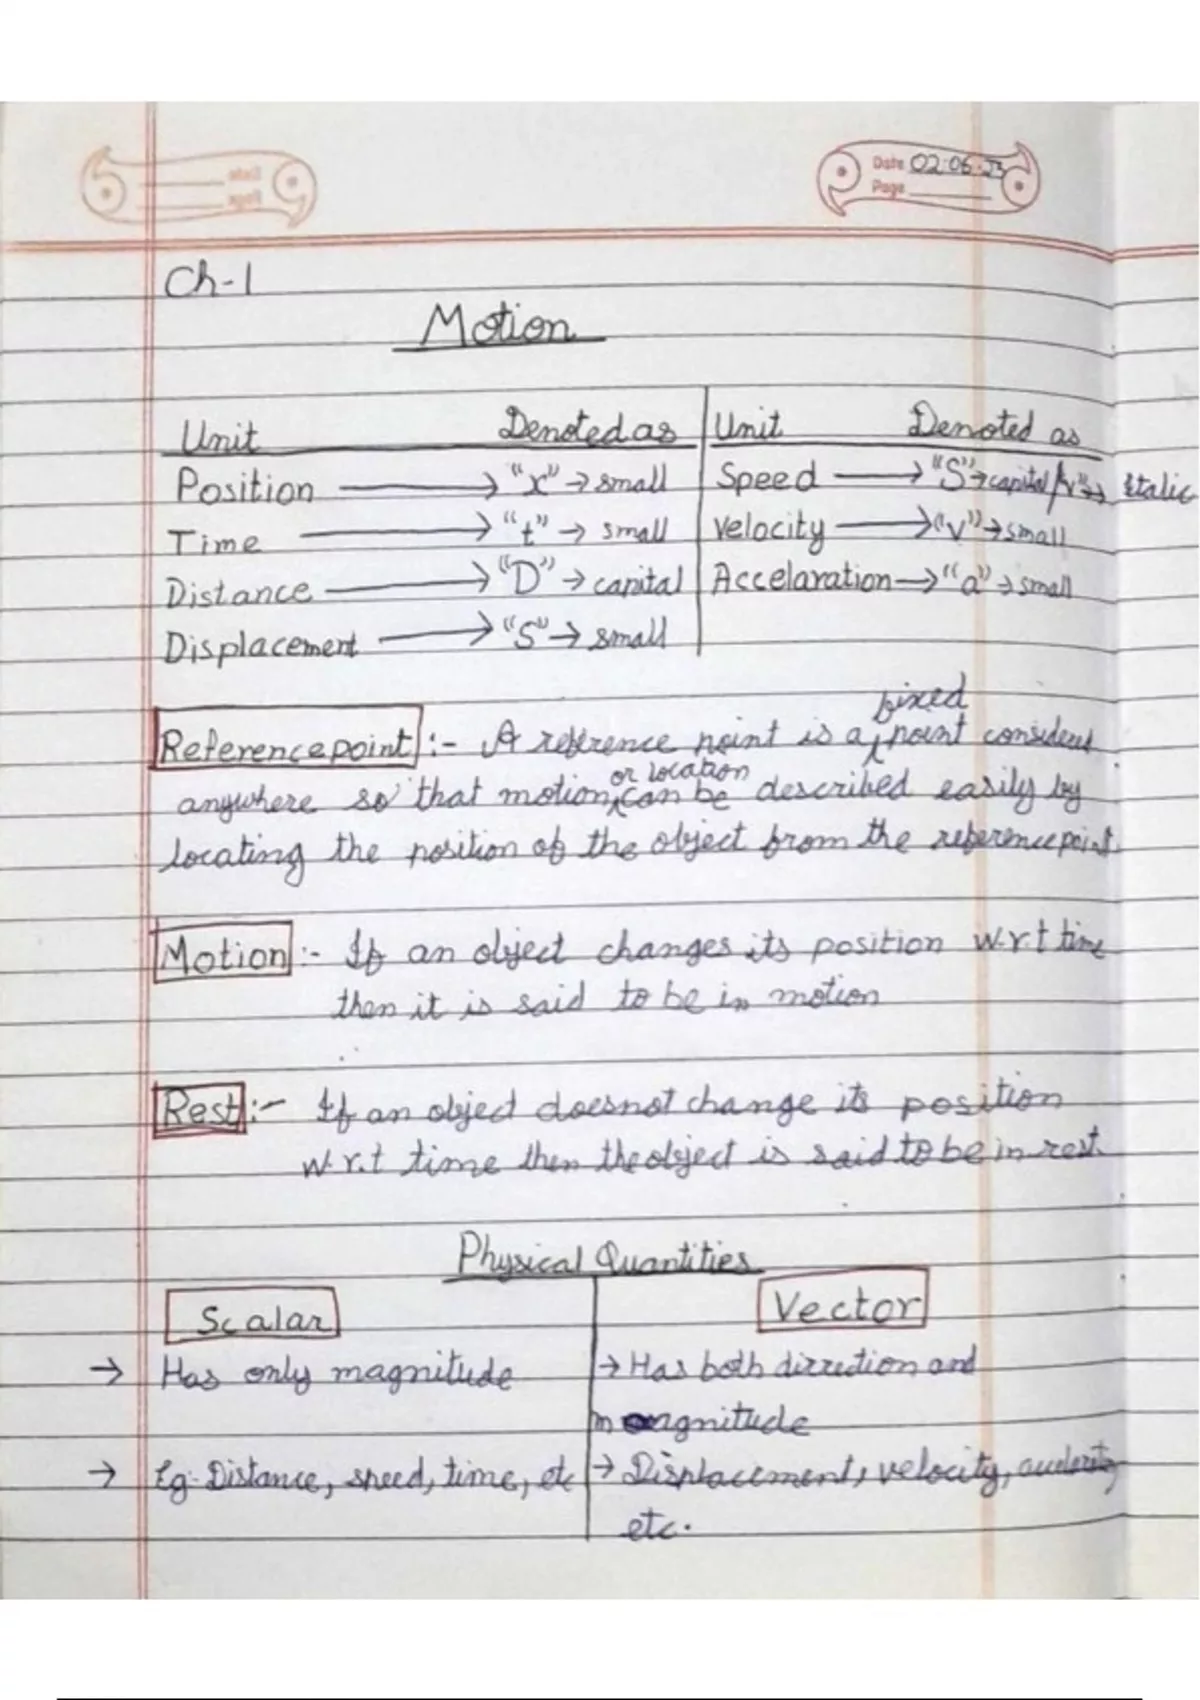 Date 02.06.23
Page
Ch-1
Motion
Unit Denoted as Unit Denoted as
Position → "x" → small Speed → "S" → capital/"v" → italic
Time → "t" → small Velocity → "v" → small
Distance → "D" → capital Accelaration → "a" → small
Displacement → "S" → small
Reference point :- A reference point is a fixed point considered
anywhere so that motion or location can be described easily by
locating the position of the object from the reference point.
Motion :- If an object changes its position w.r.t time
then it is said to be in motion
Rest :- If an object doesnot change its position
w.r.t time then the object is said to be in rest.
Physical Quantities
Scalar Vector
→ Has only magnitude → Has both dirrection and
magnitude
→ Eg:- Distance, speed, time, etc → Displacement, velocity,
etc.